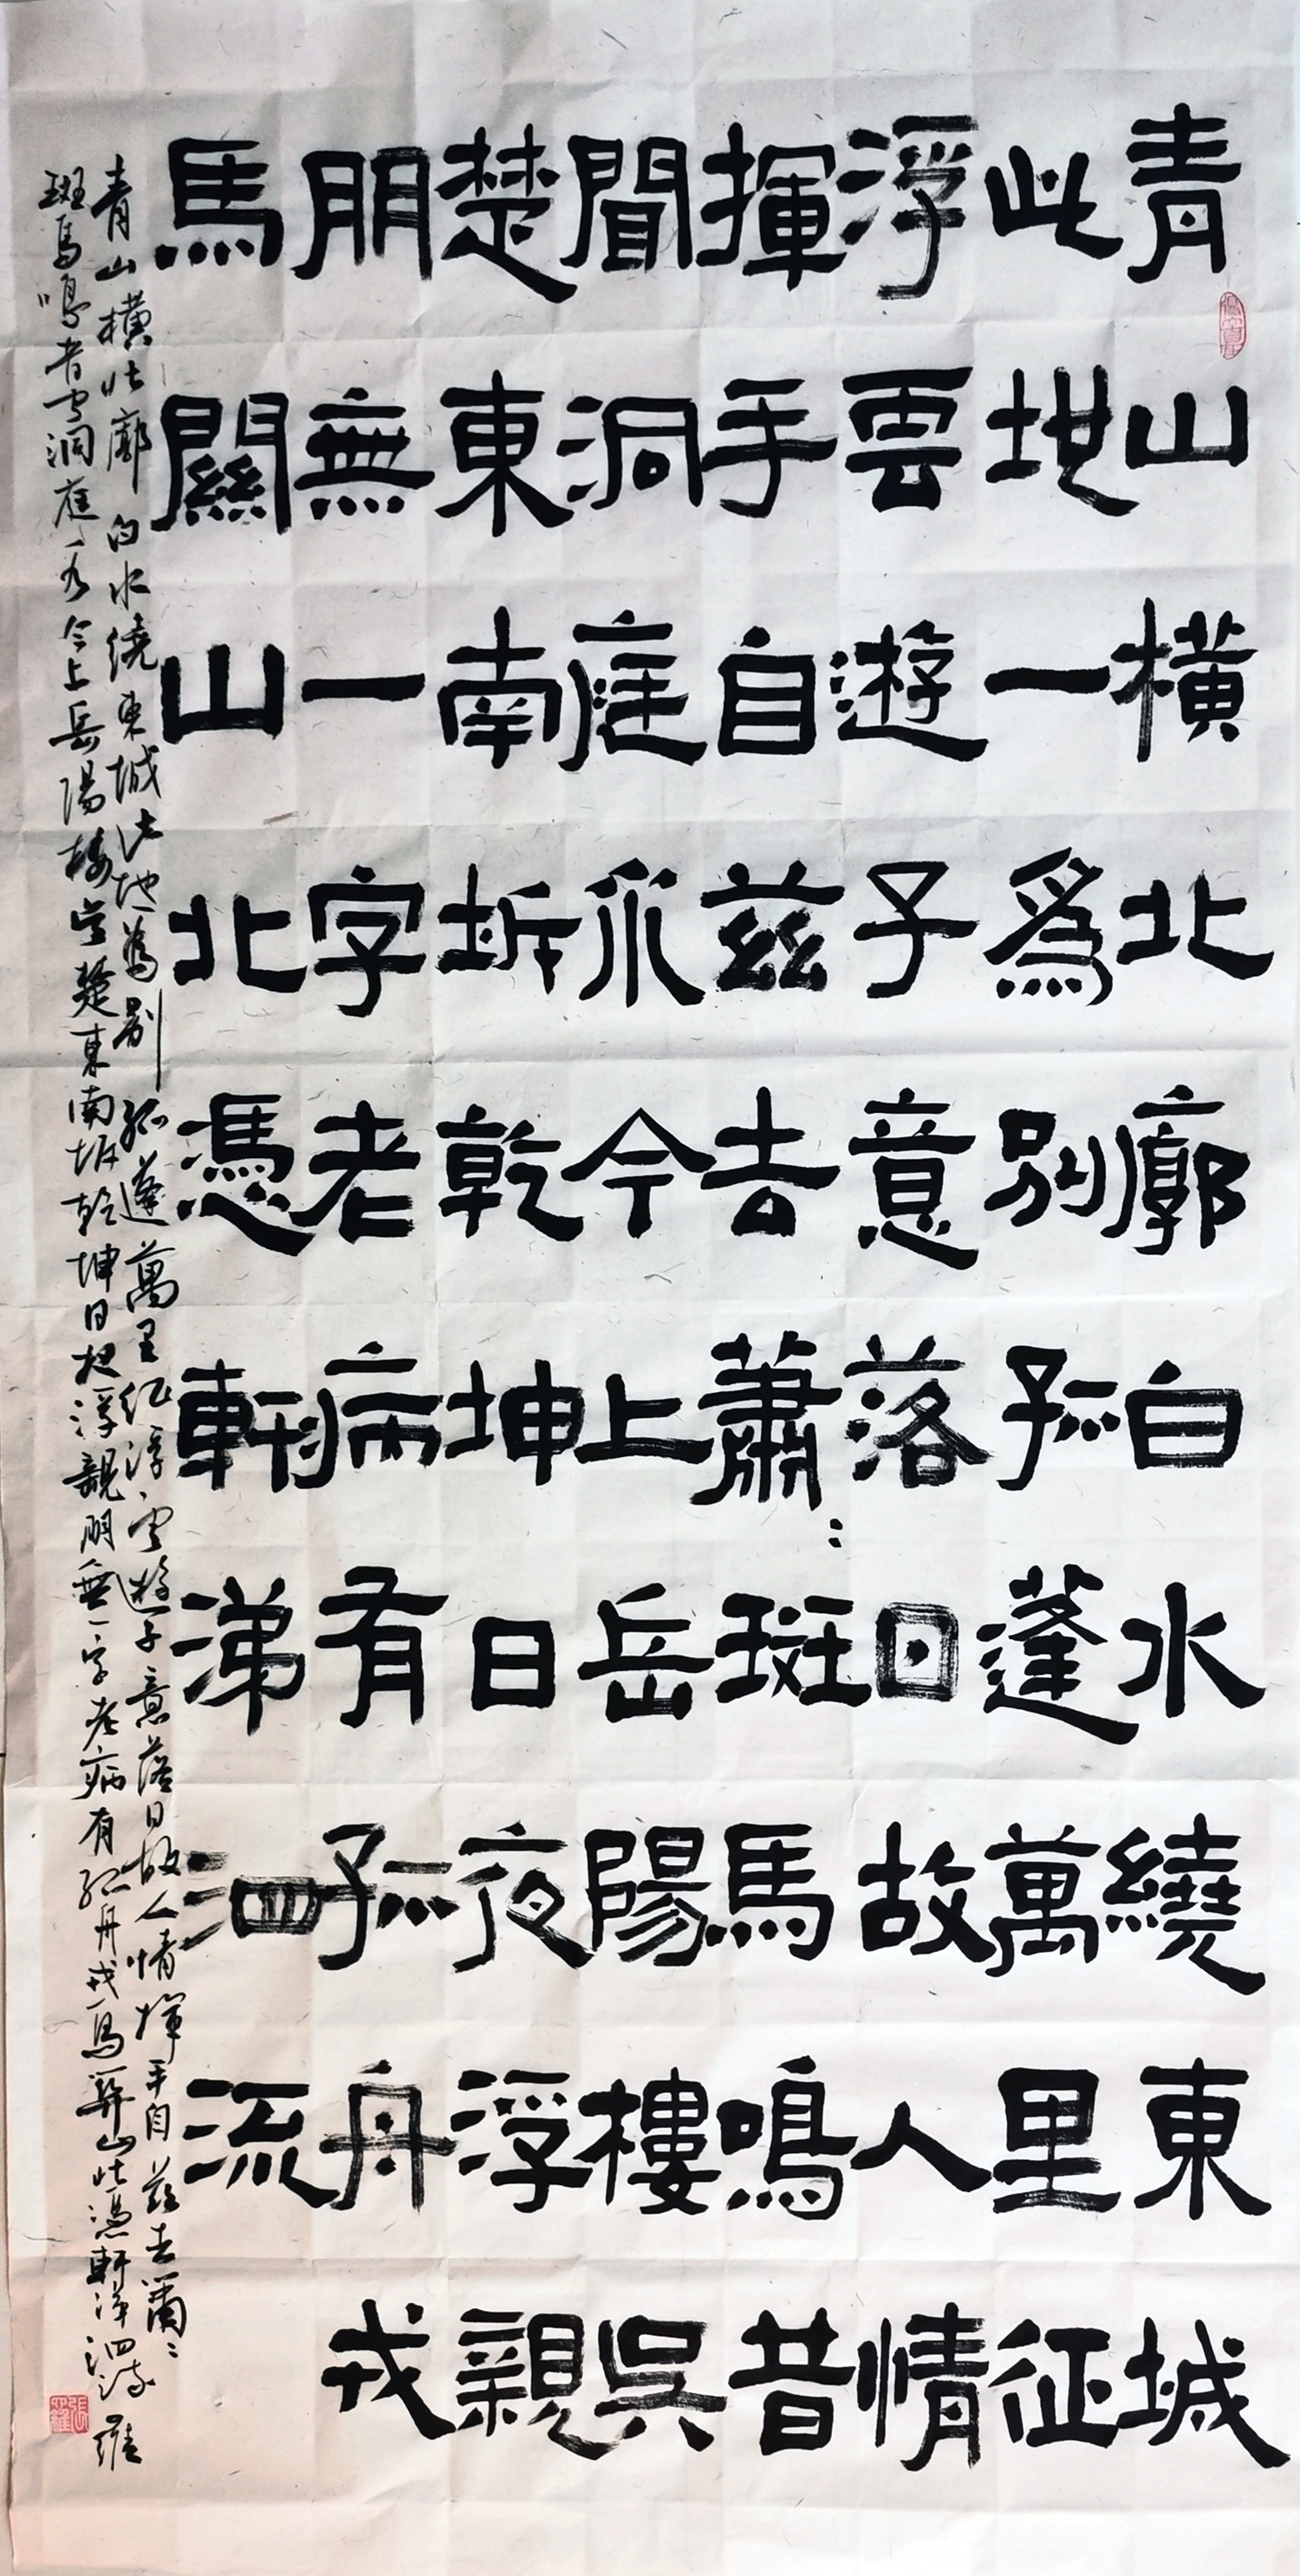 青山橫北廓白水繞東城
此地一爲別孤蓬萬里征
浮雲遊子意落日故人情
揮手自茲去蕭：斑馬鳴昔
聞洞庭水今上岳陽樓吳
楚東南坼乾坤日夜浮親
朋無一字老病有孤舟戎
馬關山北憑軒涕泗流
青山橫北廓白水繞東城此地一為別孤蓬萬里征浮雲遊子意落日故人情揮手自茲去蕭：
斑馬鳴昔聞洞庭水今上岳陽樓吳楚東南坼乾坤日夜浮親朋無一字老病有孤舟戎馬關山北憑軒涕泗流 羅